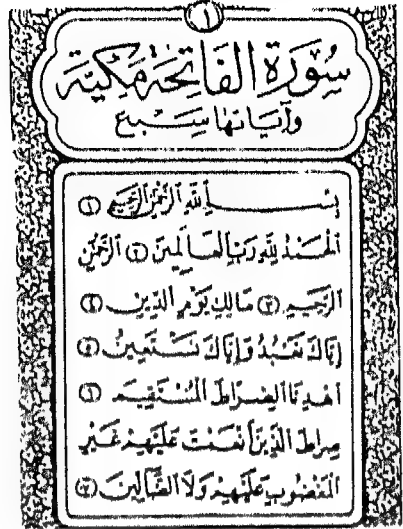 ١
سُورَةُ الفَاتِحَةِ مَكِيَّة
وآيَاتها سَبع
بِسْمِ اللَّهِ الرَّحْمَٰنِ الرَّحِيمِ ١
الْحَمْدُ لِلَّهِ رَبِّ الْعَالَمِينَ ٢ الرَّحْمَٰنِ
الرَّحِيمِ ٣ مَالِكِ يَوْمِ الدِّينِ ٤
إِيَّاكَ نَعْبُدُ وَإِيَّاكَ نَسْتَعِينُ ٥
اهْدِنَا الصِّرَاطَ الْمُسْتَقِيمَ ٦
صِرَاطَ الَّذِينَ أَنْعَمْتَ عَلَيْهِمْ غَيْرِ
الْمَغْضُوبِ عَلَيْهِمْ وَلَا الضَّالِّينَ ٧